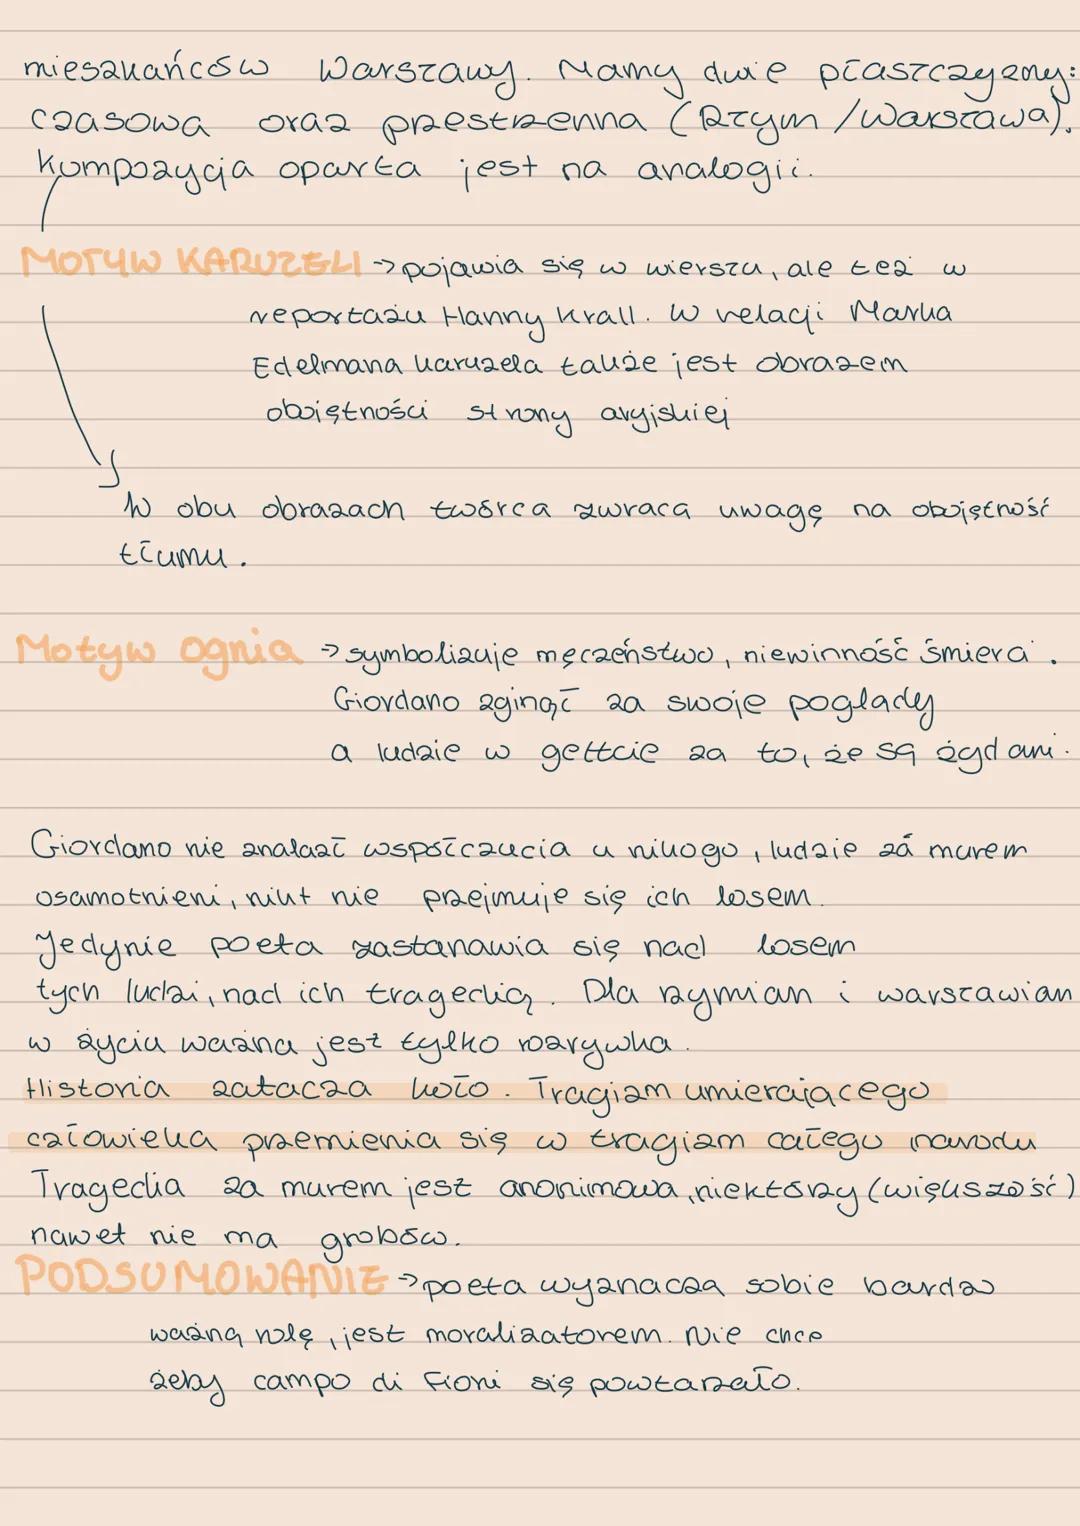 mieszkańców Warszawy. Mamy dwie płaszczyzny:
czasowa oraz przestrzenna (Rzym / Warszawa).
Kompozycja oparta jest na analogii.
MOTYW KARUZELI → pojawia się w wierszu, ale też w
reportażu Hanny Krall. W relacji Marka
Edelmana karuzela także jest obrazem
obojętności strony aryjskiej
W obu obrazach twórca zwraca uwagę na obojętność
tłumu.
Motyw Ognia → symbolizuje męczeństwo, niewinność śmierci.
Giordano zginął za swoje poglądy
a ludzie w gettcie za to, że są żydami.
Giordano nie znalazł współczucia u nikogo, ludzie za murem
osamotnieni, nikt nie przejmuje się ich losem.
Jedynie poeta zastanawia się nad losem
tych ludzi, nad ich tragedią. Dla rzymian i warszawian
w życiu ważna jest tylko rozrywka.
Historia zatacza koło. Tragizm umierającego
człowieka przemienia się w tragizm całego narodu
Tragedia za murem jest anonimowa, niektórzy (większość)
nawet nie ma grobów.
PODSUMOWANIE → poeta wyznacza sobie bardzo
ważną rolę, jest moralizatorem. Nie chce
żeby campo di Fiori się powtarzało.